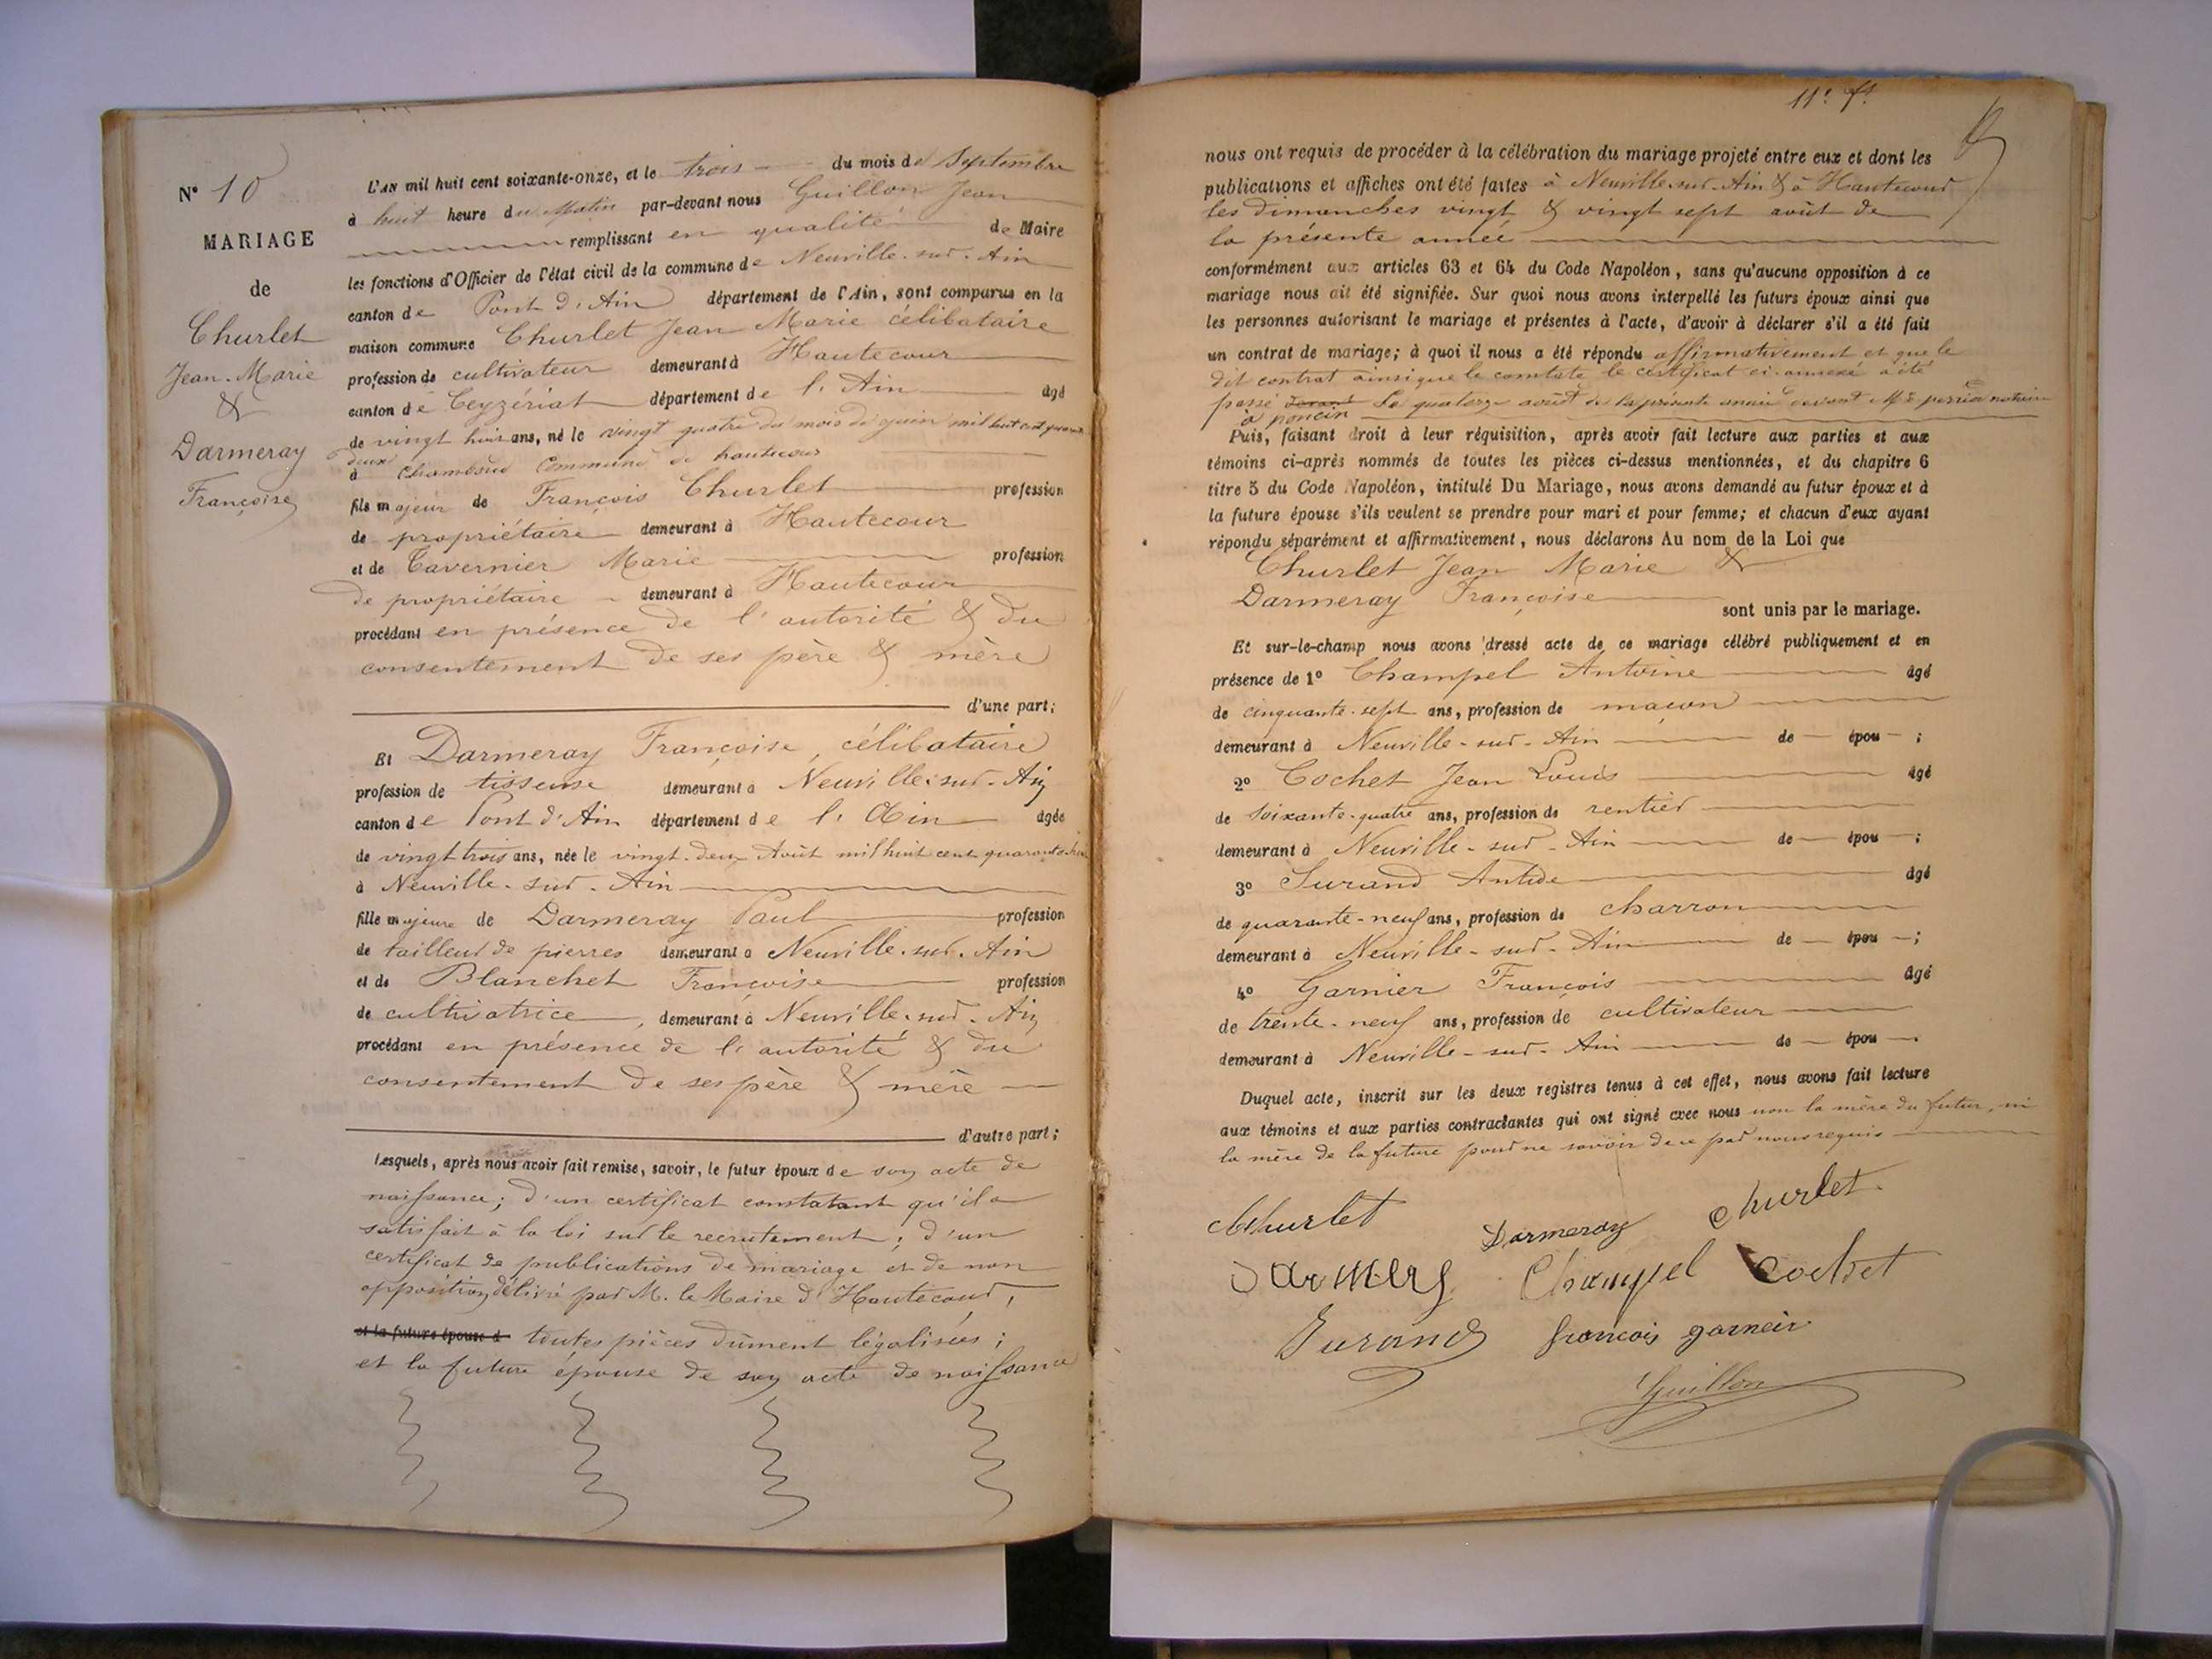 N° 10
MARIAGE
de
Churlet
Jean-Marie
&
Darmeray
Françoise
L'AN mil huit cent soixante-onze, et le trois du mois de Septembre
à huit heure du Matin par-devant nous Guillon Jean
remplissant en qualité de Maire
les fonctions d'Officier de l'état civil de la commune de Neuville-sur-Ain
canton de Pont d'Ain département de l'Ain, sont comparus en la
maison commune Churlet Jean Marie célibataire
profession de cultivateur demeurant à Hautecour
canton de Ceyzériat département de l'Ain âgé
de vingt huit ans, né le vingt quatre du mois de juin mil huit cent quarante
deux
à commune de hautecour
fils majeur de François Churlet profession
de propriétaire demeurant à Hautecour
et de Tavernier Marie profession
de propriétaire demeurant à Hautecour
procédant en présence de l'autorité & du
consentement de ses père & mère
d'une part;
Et Darmeray Françoise, célibataire
profession de tisseuse demeurant à Neuville-sur-Ain
canton de Pont d'Ain département de l'Ain âgée
de vingt trois ans, née le vingt-deux Août mil huit cent quarante-huit
à Neuville-sur-Ain
fille majeure de Darmeray Paul profession
de tailleur de pierres demeurant à Neuville-sur-Ain
et de Blanchet Françoise profession
de cultivatrice, demeurant à Neuville-sur-Ain
procédant en présence de l'autorité & du
consentement de ses père & mère
d'autre part;
Lesquels, après nous avoir fait remise, savoir, le futur époux de son acte de
naissance; d'un certificat constatant qu'il a
satisfait à la loi sur le recrutement; d'un
certificat de publications de mariage et de non
opposition délivré par M. le Maire d'Hautecour,
et la future épouse d toutes pièces dûment légalisées;
et la future épouse de son acte de naissance
11e ft
nous ont requis de procéder à la célébration du mariage projeté entre eux et dont les
publications et affiches ont été faites à Neuville-sur-Ain & à Hautecour
les dimanches vingt & vingt sept août de
la présente année
conformément aux articles 63 et 64 du Code Napoléon, sans qu'aucune opposition à ce
mariage nous ait été signifiée. Sur quoi nous avons interpellé les futurs époux ainsi que
les personnes autorisant le mariage et présentes à l'acte, d'avoir à déclarer s'il a été fait
un contrat de mariage; à quoi il nous a été répondu affirmativement et que le
dit contrat ainsi que le constate le certificat ci-annexé a été
passé Le quatorze août de la présente année devant Me perrier notaire
à poncin
Puis, faisant droit à leur réquisition, après avoir fait lecture aux parties et aux
témoins ci-après nommés de toutes les pièces ci-dessus mentionnées, et du chapitre 6
titre 5 du Code Napoléon, intitulé Du Mariage, nous avons demandé au futur époux et à
la future épouse s'ils veulent se prendre pour mari et pour femme; et chacun d'eux ayant
répondu séparément et affirmativement, nous déclarons Au nom de la Loi que
Churlet Jean Marie &
Darmeray Françoise
sont unis par le mariage.
Et sur-le-champ nous avons dressé acte de ce mariage célébré publiquement et en
présence de 1° Champel Antoine âgé
de cinquante-sept ans, profession de maçon
demeurant à Neuville-sur-Ain de épou ;
2° Cochet Jean Louis âgé
de soixante-quatre ans, profession de rentier
demeurant à Neuville-sur-Ain de épou ;
3° Surand Antide âgé
de quarante-neuf ans, profession de charron
demeurant à Neuville-sur-Ain de épou ;
4° Garnier François âgé
de trente-neuf ans, profession de cultivateur
demeurant à Neuville-sur-Ain de épou
Duquel acte, inscrit sur les deux registres tenus à cet effet, nous avons fait lecture
aux témoins et aux parties contractantes qui ont signé avec nous non la mère du futur, ni
la mère de la future pour ne savoir de ce par nous requis
Churlet Darmeray churlet
Darmery Champel Cochet
Surand françois garneir
Guillon